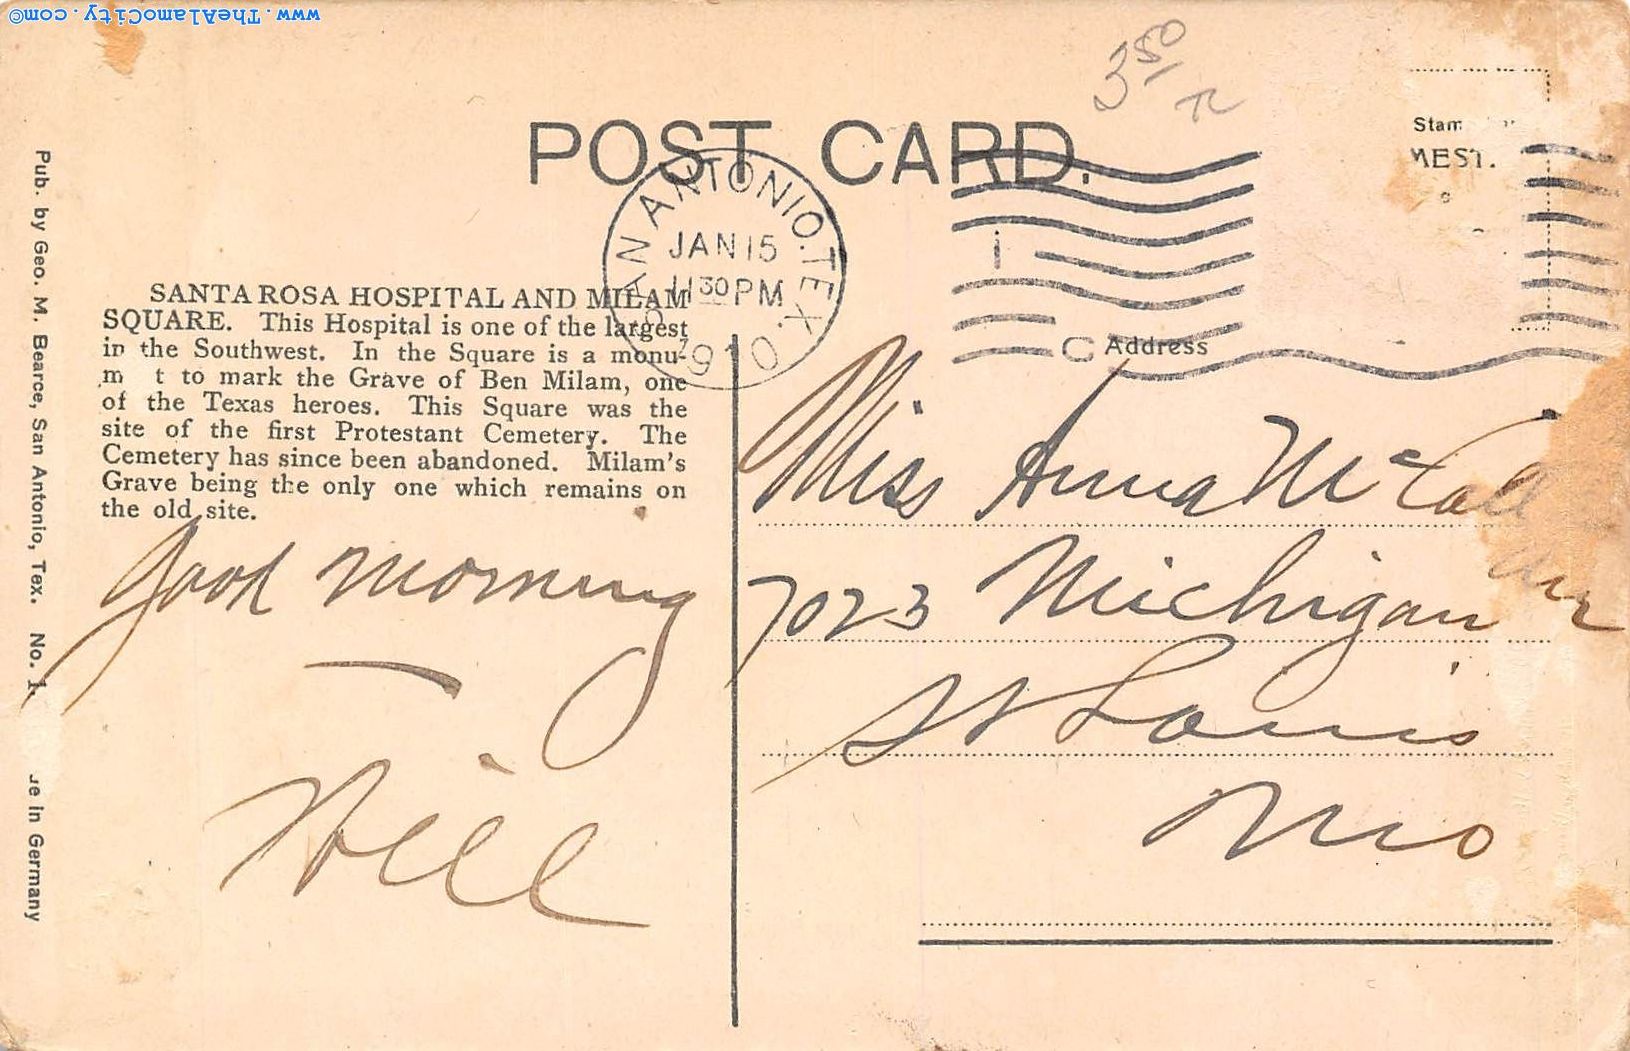 www.TheAlamoCity.com©
3 50
POST CARD.
SAN ANTONIO. TEX.
JAN 15
11 30 PM
1910
MEST.
Pub. by Geo. M. Bearce, San Antonio, Tex. No. 1
in Germany
SANTA ROSA HOSPITAL AND MILAM
SQUARE. This Hospital is one of the largest
in the Southwest. In the Square is a monu-
m t to mark the Grave of Ben Milam, one
of the Texas heroes. This Square was the
site of the first Protestant Cemetery. The
Cemetery has since been abandoned. Milam's
Grave being the only one which remains on
the old site.
Good morning
Address
Miss Anna
7023 Michigan
St Louis
Mo